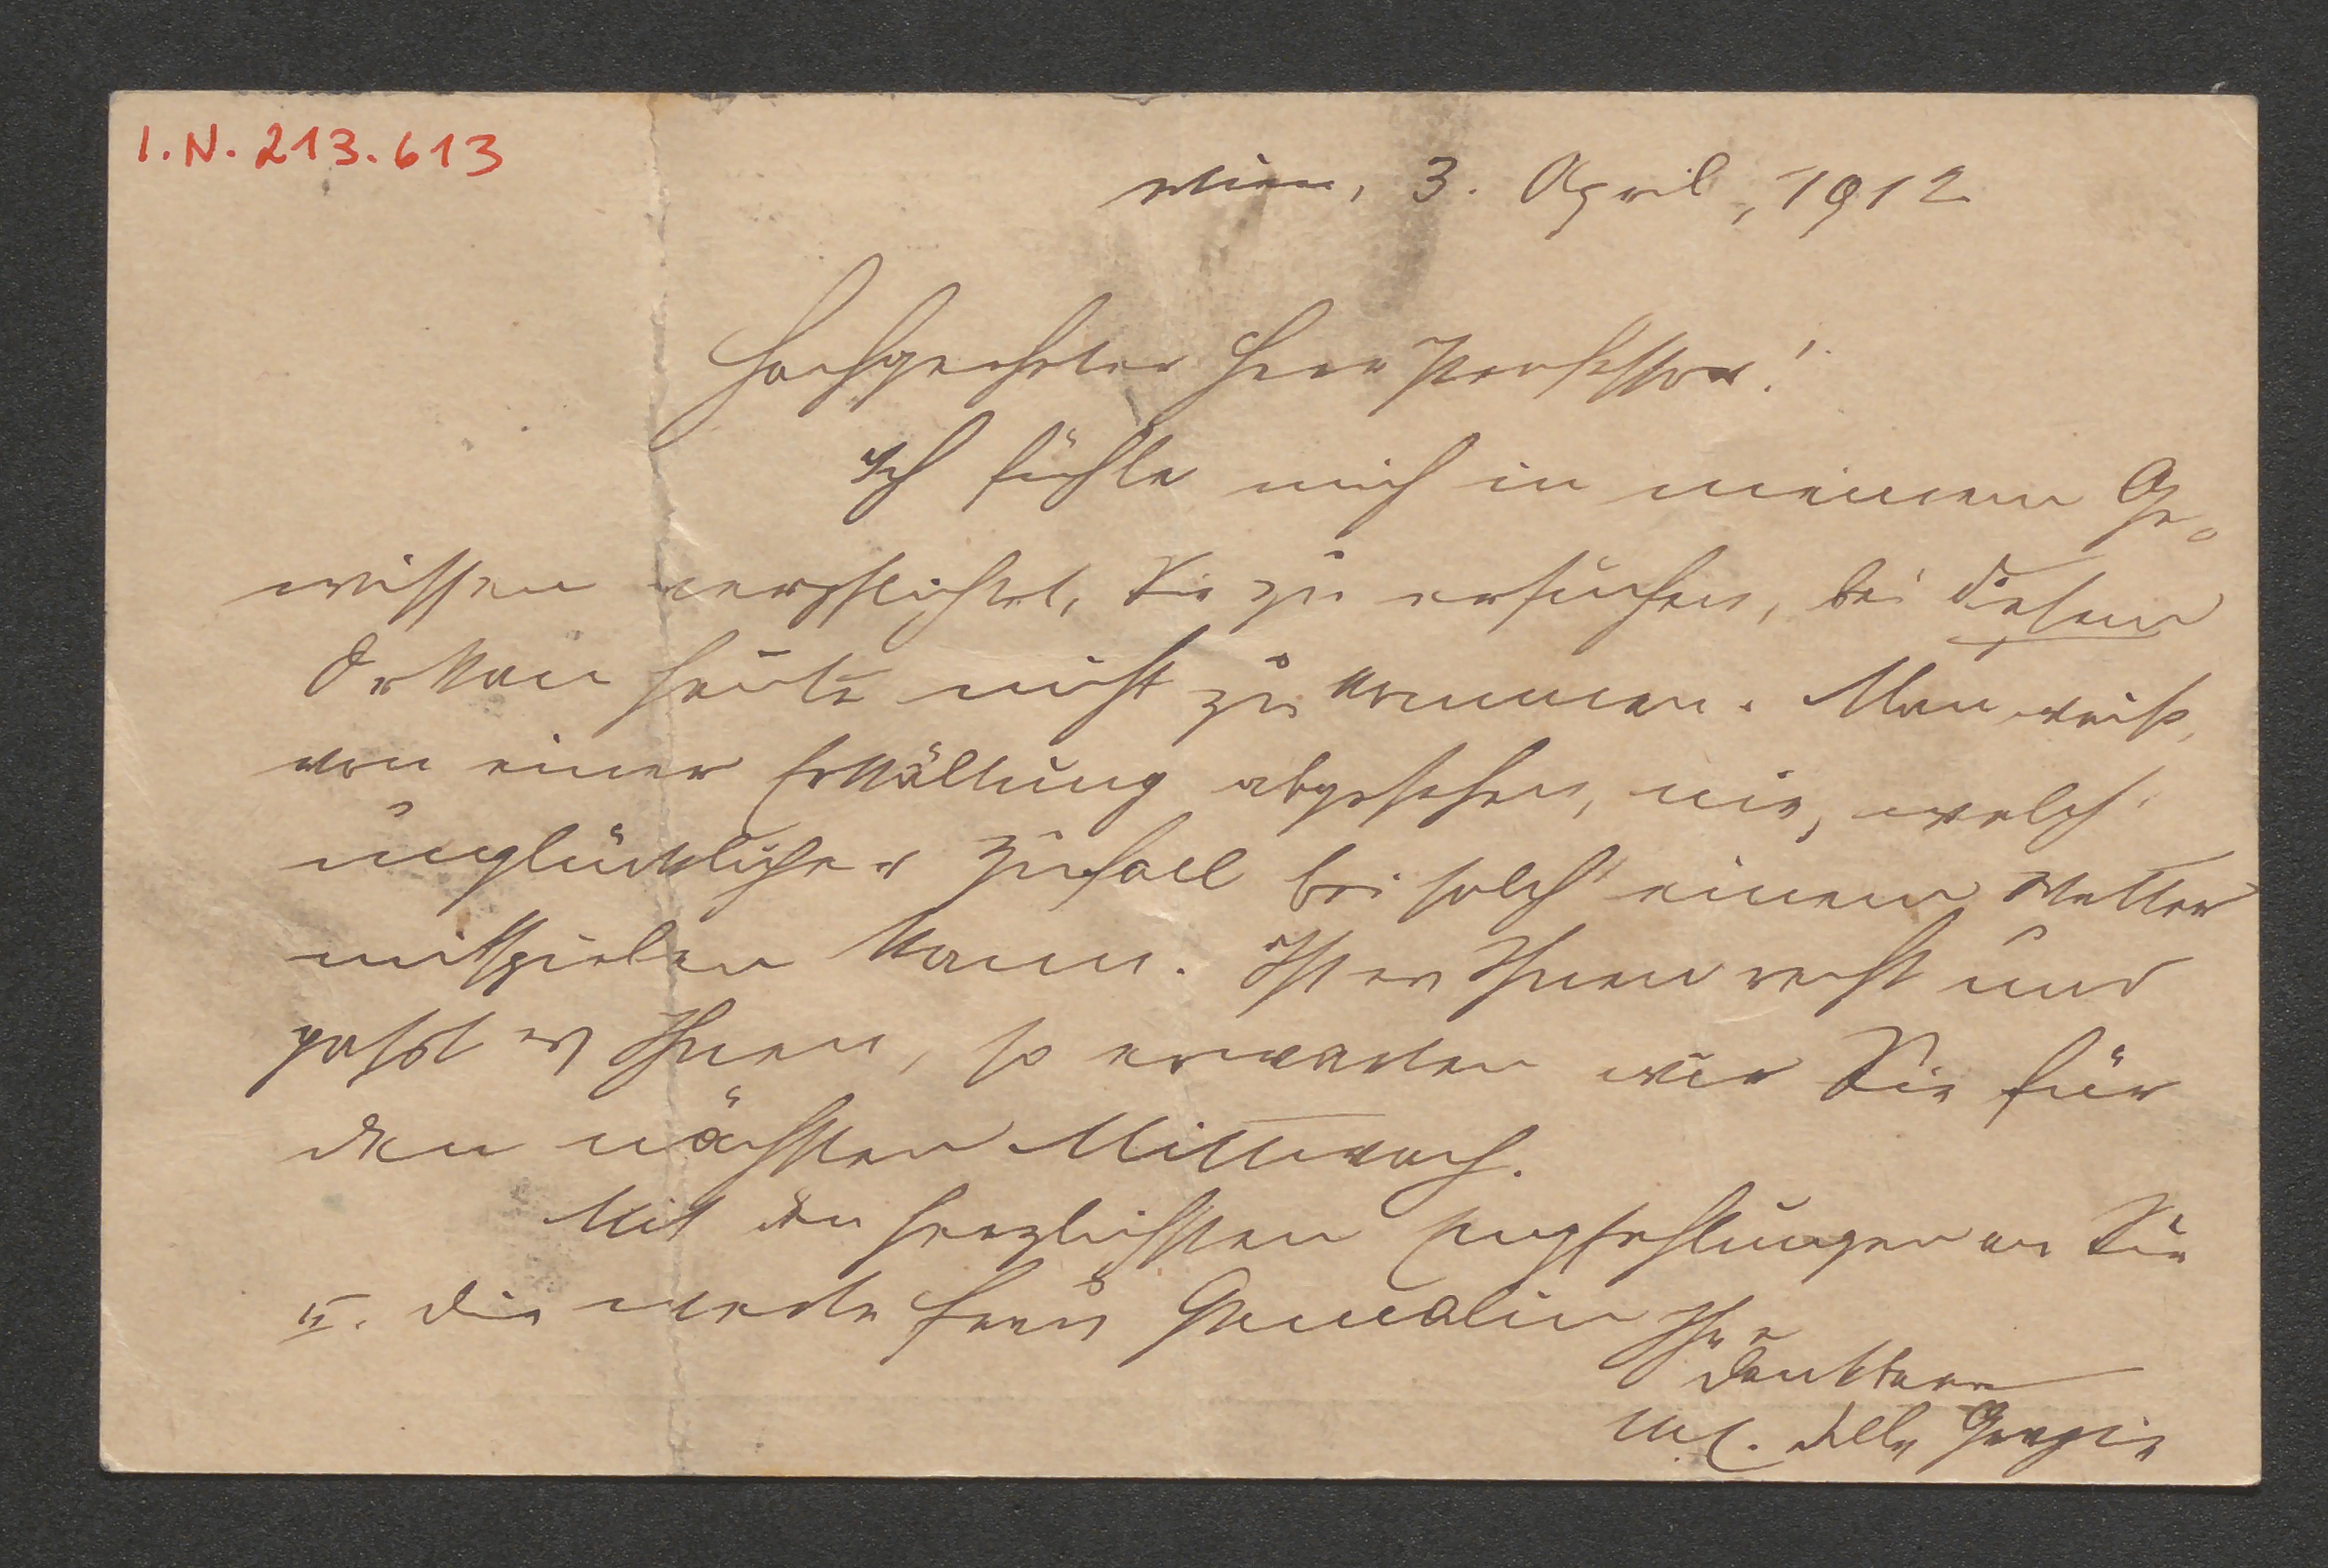 I.N. 213.613
Wien, 3. April, 1912
Hochgeehrter Herr Professor!
Ich fühle mich in meinem Ge-
wissen verpflichtet, Sie zu ersuchen, bei diesem
Orkan heute nicht zu kommen. Man weiß,
von einer Erkältung abgesehen, nie, welch'
unglücklicher Zufall bei solch' einem Wetter
mitspielen kann. Ist es Ihnen recht und
passt es Ihnen, so erwarten wir Sie für
den nächsten Mittwoch.
Mit den herzlichsten Empfehlungen an Sie
u. die werte Frau Gemalin Ihre
dankbare
M. E. delle Grazie